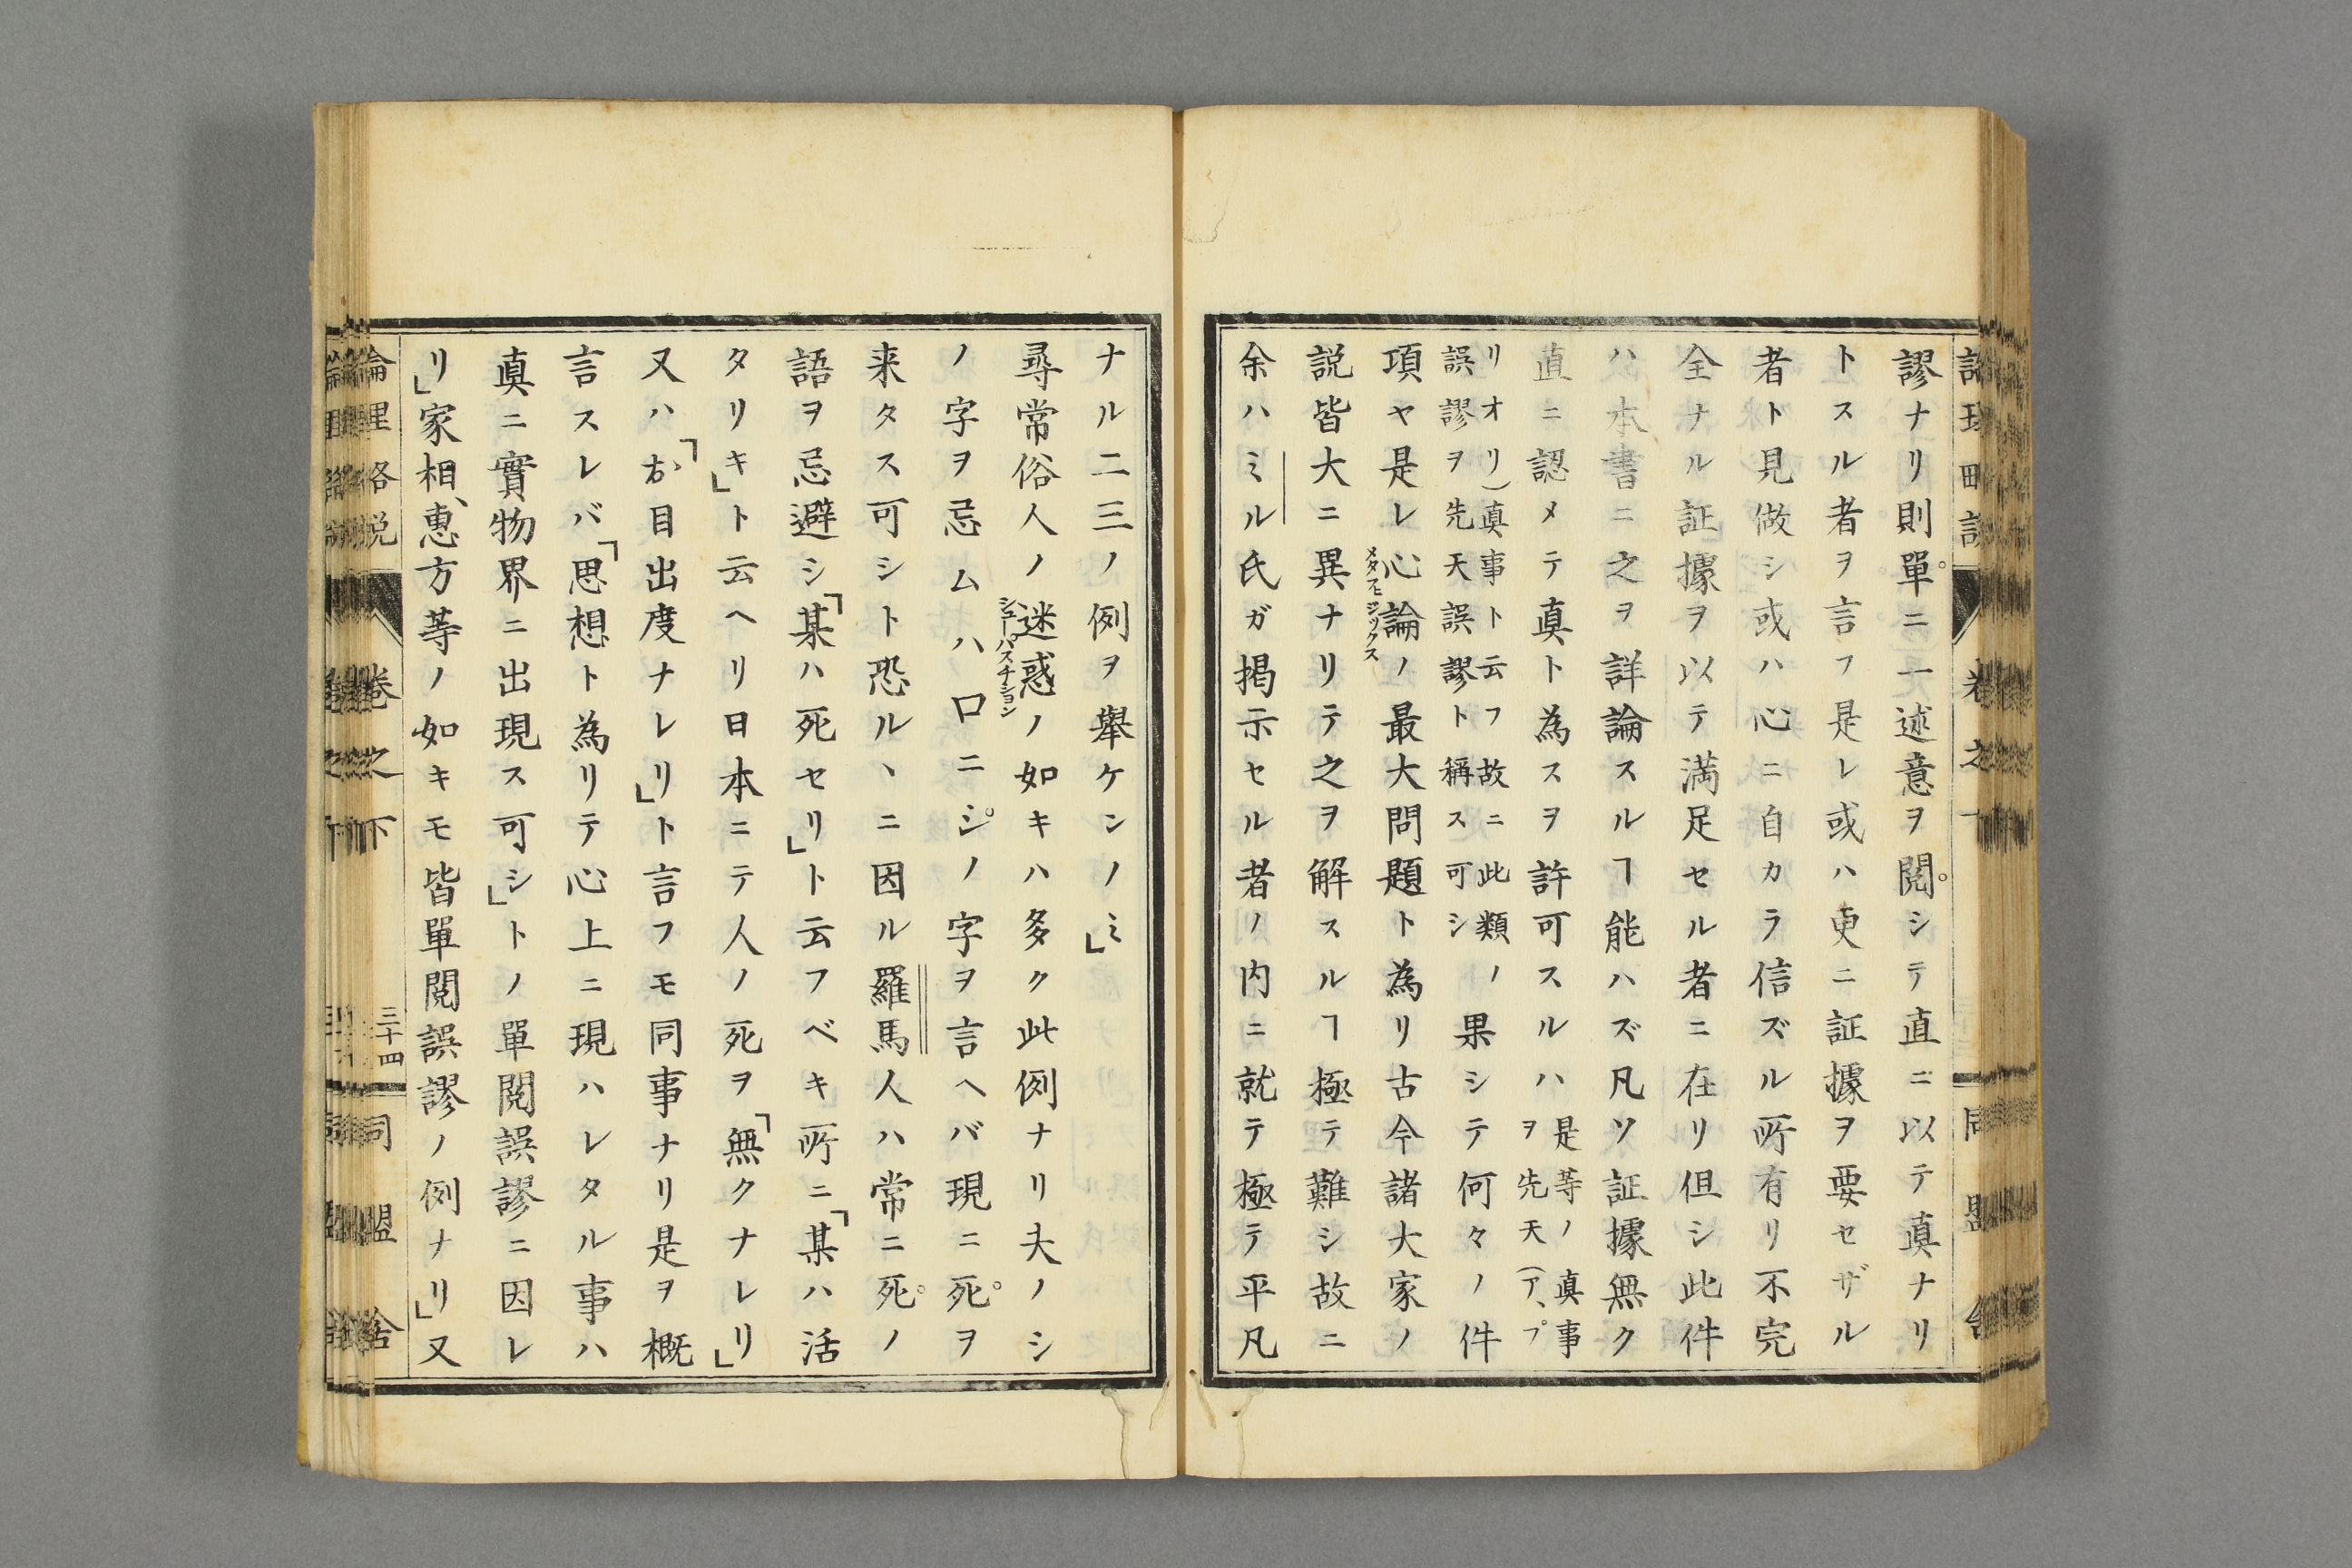 謬ナリ則單ニ一述意ヲ閲シテ直ニ以テ真ナリ
トスル者ヲ言フ是レ或ハ更ニ証據ヲ要セザル
者ト見做シ或ハ心ニ自カラ信ズル所有リ不完
全ナル証據ヲ以テ満足セル者ニ在リ但シ此件
ハ本書ニ之ヲ詳論スルヿ能ハズ凡ソ証據無ク
直ニ認メテ真ト為スヲ許可スルハ
是等ノ真事
ヲ先天(ア、プ
リオリ)真事ト云フ故ニ此類ノ
誤謬ヲ先天誤謬ト稱ス可シ
果シテ何々ノ件
項ヤ是レ心論ノ最大問題ト為リ古今諸大家ノ
メタフヒジックス
説皆大ニ異ナリテ之ヲ解スルヿ極テ難シ故ニ
余ハミル氏ガ掲示セル者ノ内ニ就テ極テ平凡
ナル二三ノ例ヲ舉ケンノミ」
尋常俗人ノ迷惑ノ如キハ多ク此例ナリ夫ノシ
シューパスチション
ノ字ヲ忌ムハ口ニシノ字ヲ言ヘバ現ニ死ヲ
来タス可シト恐ルヽニ因ル羅馬人ハ常ニ死ノ
語ヲ忌避シ「某ハ死セリ」ト云フベキ所ニ「某ハ活
タリキ」ト云ヘリ日本ニテ人ノ死ヲ「無クナレリ」
又ハ「お目出度ナレリ」ト言フモ同事ナリ是ヲ概
言スレバ「思想ト為リテ心上ニ現ハレタル事ハ
真ニ實物界ニ出現ス可シ」トノ單閲誤謬ニ因レ
リ」家相、惠方等ノ如キモ皆單閲誤謬ノ例ナリ」又
論理略説
卷之下
三十四
同盟舎